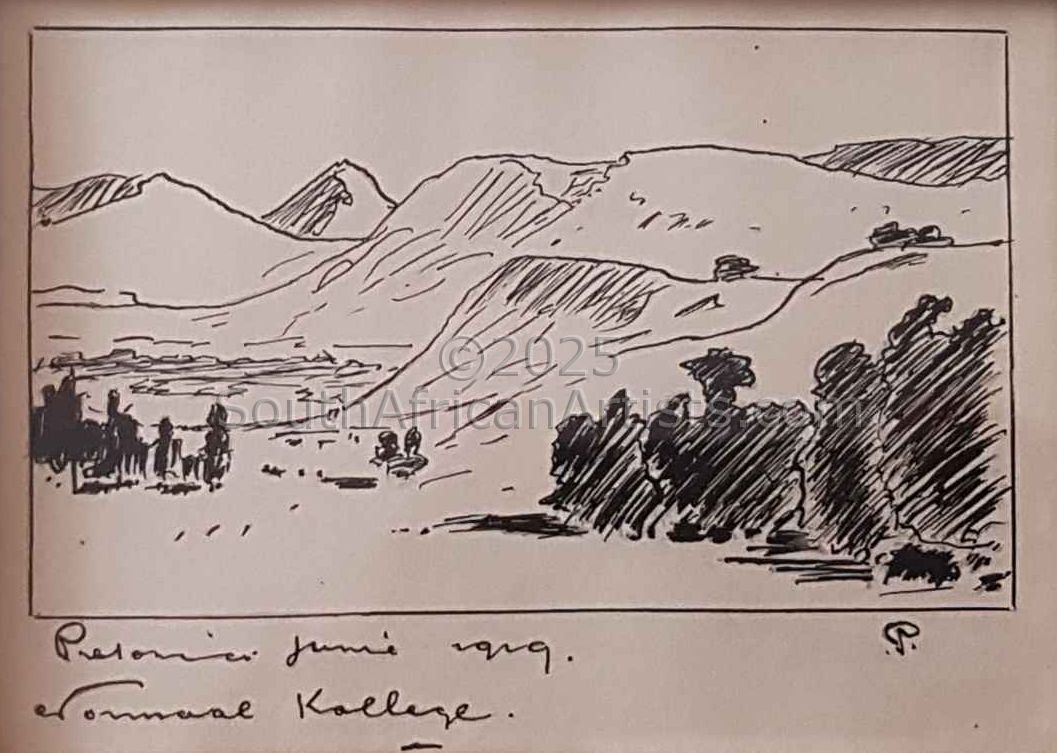 ©2025
SouthAfricanArtists.com
Pretoria Junie 1919.
P.
Normaal Kollege.